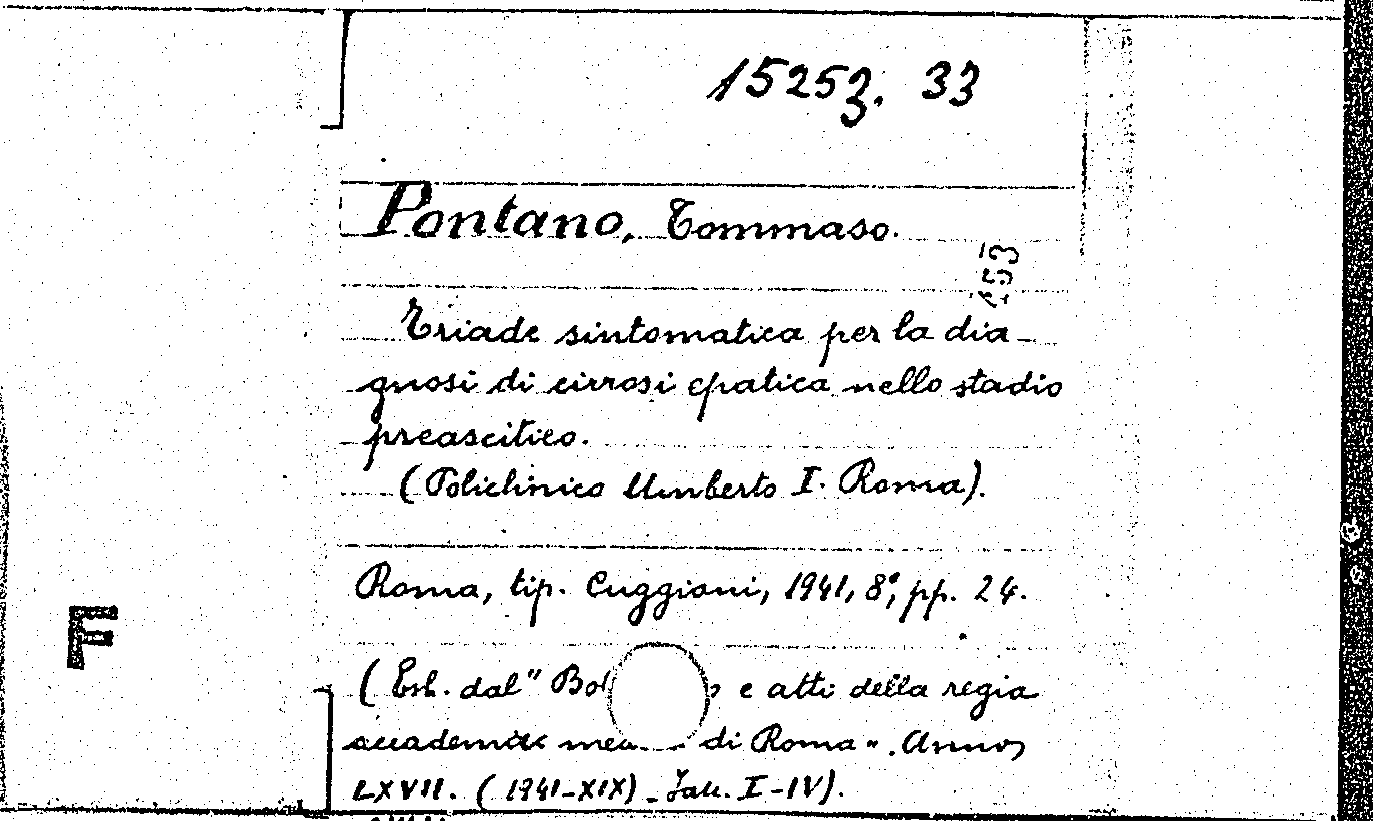 15253. 33
Pontano, Tommaso.
153
Triade sintomatica per la dia-
gnosi di cirrosi epatica nello stadio
preascitico.
(Policlinico Umberto I. Roma).
Roma, tip. Cuggiani, 1941, 8°, pp. 24.
F
(Estr. dal " Bol o e atti della regia
accademia me di Roma ". Anno
LXVII. (1941-XIX) - Fasc. I-IV).